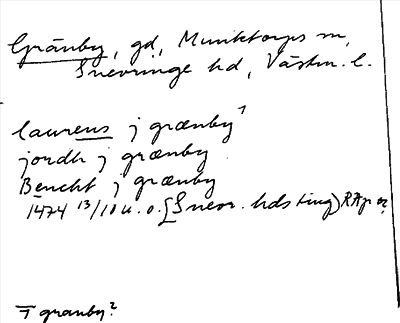 Gränby, gd, Munktorps sn,
Snevringe hd, Västm. l.
laurens j grænby¹
jordh j grænby
Bencht j grænby
1474 13/10 u. o. [Snevr. hds ting) RAp or
granby?